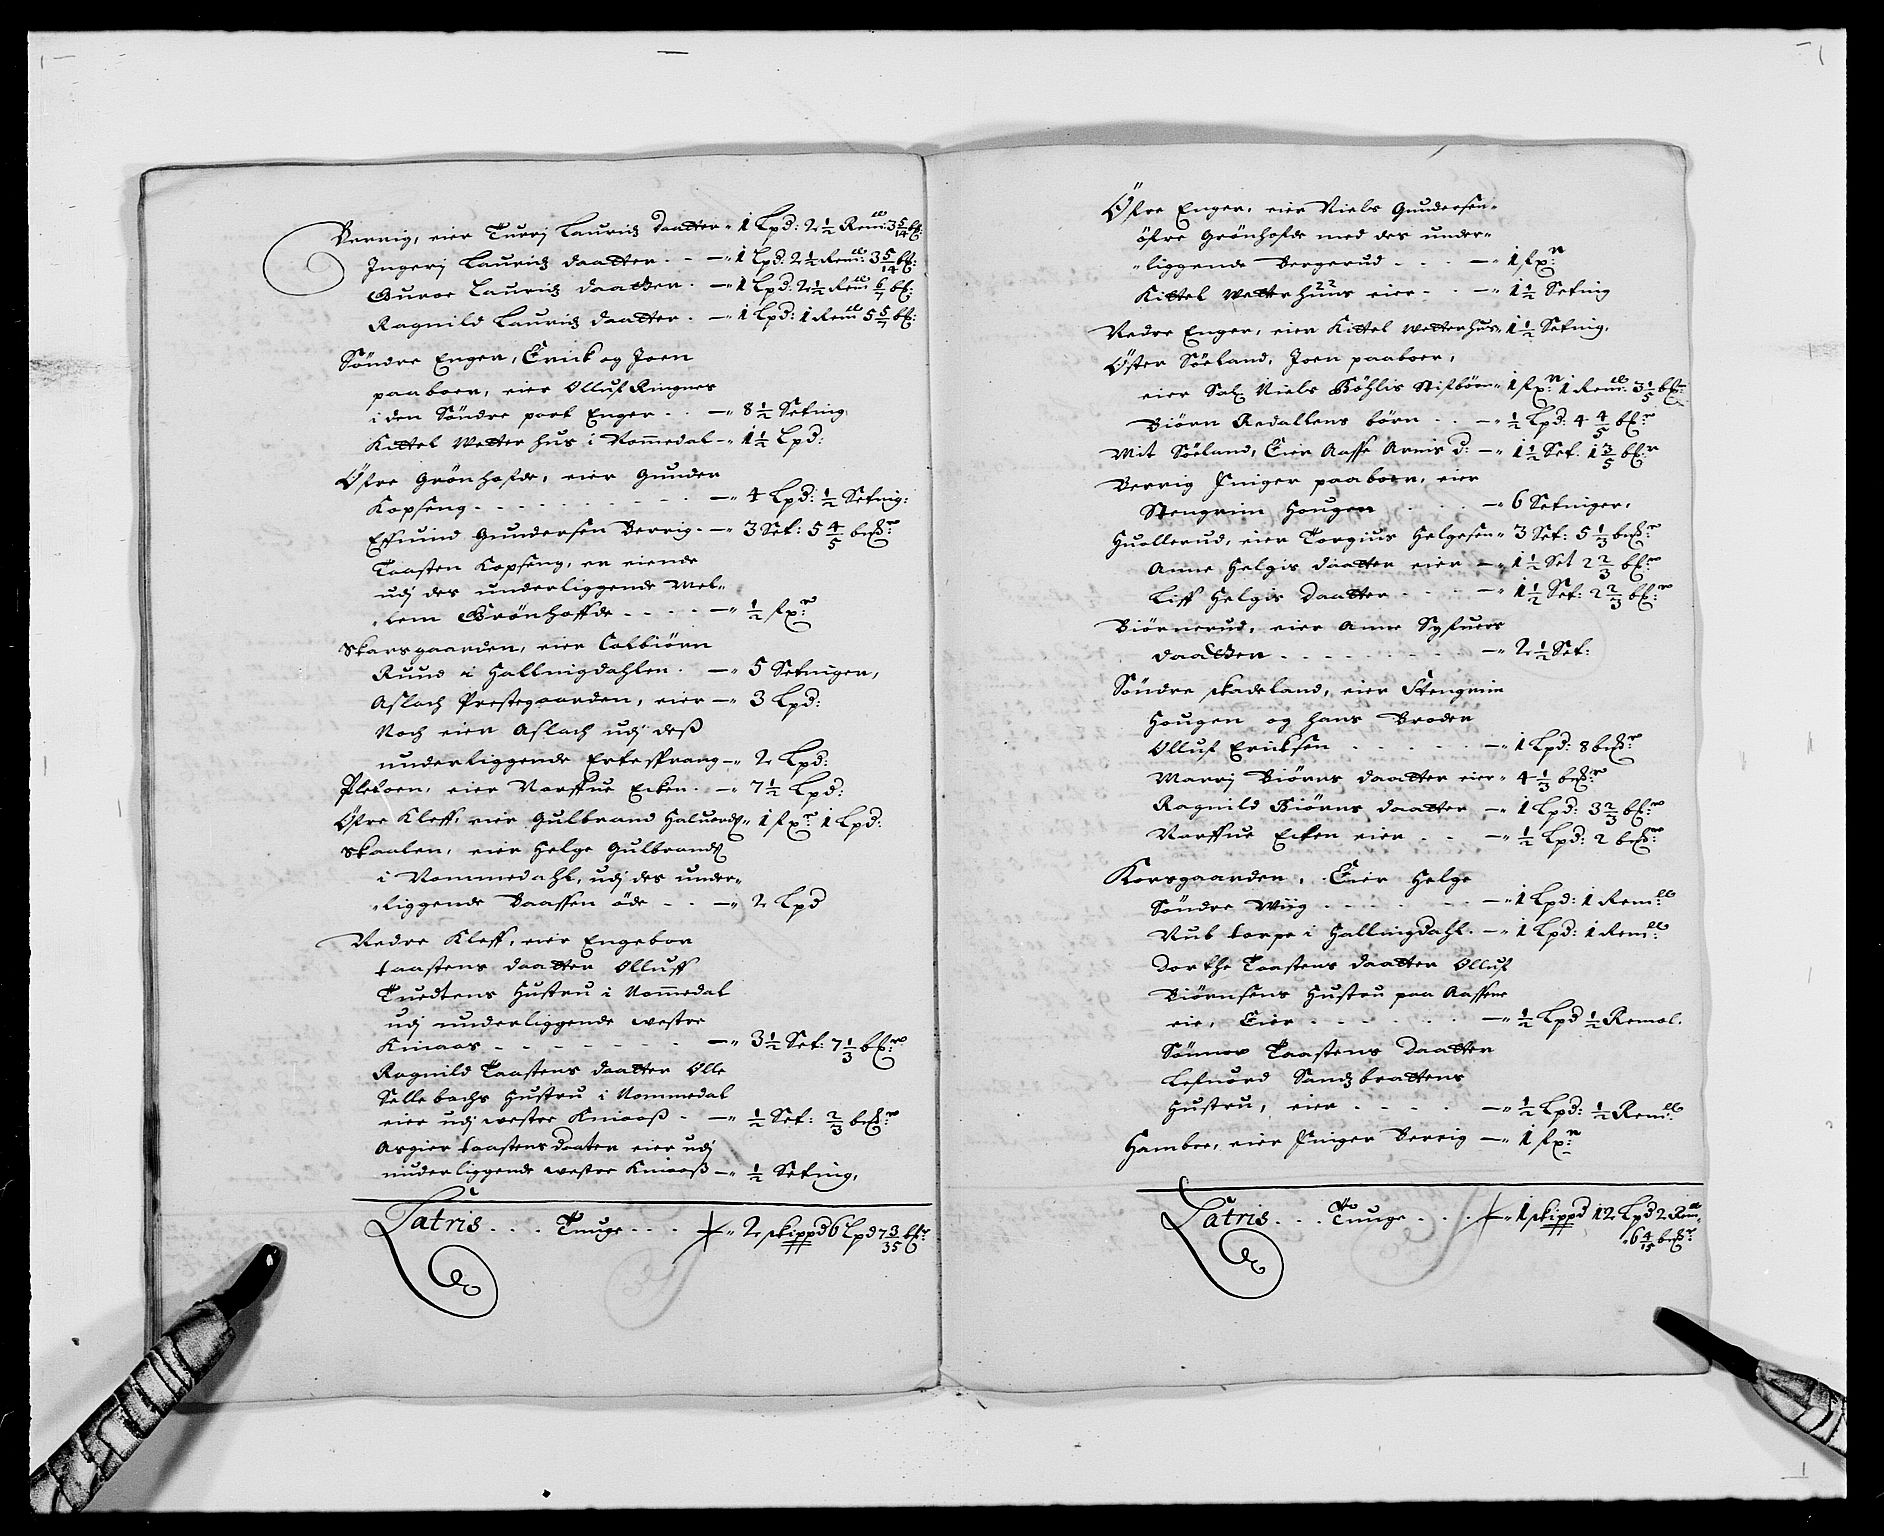 Berrig, eier Turrj Lauridz daatter „ 1 Lpd: 2½ Rem: 3 5/14 bs:
Ingerj Lauridz daatter . . —„ 1 Lpd: 2½ Rem: 3 5/14 bs:
Guroe Lauridz daatter . —„ 1 Lpd: 2½ Rem 6/7 bs:
Ragnild Lauridz daatter . —„ 1 Lpd: 1 Rem 5 5/7 bs:
Söndre Enger, Erick og Joen
paaboer, eier Olluf Ringnes
i den Söndre part Enger . . —„ 8½ Setting
Kittel Wetterhus i Nommedal —„ 1½ Lpd:
Öfre Grönhofde, eier Gunder
Kopseng . . . . . . . —„ 4 Lpd: ½ Setnig:
Effuind Gundersen Berrig . —„ 3 Set: 5 4/5 bes:
Taasten Kopseng, er eiende
udj des underliggende Mel„
„lem Grönhoffde . . . . —„ ½ fxr
Skarsgaarden, eier Colbiörn
Ruud i Hallingdahlen . —„ 5 Setniger,
Aslach Prestegaarden, eier —„ 3 Lpd:
Noch eier Aslach udj deß
underliggende Ertespraang —„ 2 Lpd:
Pletoen, eier Narffue Ecken . —„ 7½ Lpd:
Öfre Kleff, eier Gulbrand Haluords „ 1 fxr 1 Lpd:
Skaalen, eier Helge Gulbrands
i Nommedahl, udj des under„
„liggende Baassen öde . . —„ 2 Lpd
Nedre Kleff, eier Engebor
taastens daatter Olluff
Tuedtens Hustru i Nommedal
udj underliggende westre
Kinaas . . . . . . . —„ 3½ Set: 7⅓ bs:
Ragnild Taastens daatter Olle
Sellebachs Hustru i Nommedal
eier udj westre Kinaaß . —„ ½ Set: ⅔ bes:
Asgier taastensdaater eier udj
underliggende westre Kinaaß —„ ½ Setning,
Latris . . . Tunge . . . „ 2 skippd 6 Lpd 7 3/35 bs:
Öfre Enger, eier Niels Gundersen„
öfre Grönhofde med des under„
„liggende Bergerud . . . —„ 1 fxr
Kittel Wetterhuus eier . . —„ 1½ Setnig
Nedre Enger, eier Kittel Wetterhus, 1½ Setnig,
Öster Söeland, Joen paaboer,
eier Sal Niels Böhlis Stifbörn „ 1 fxr 1 Rem: 3 1/5 bs:
Biörn Redaltens börn . . —„ ½ Lpd: 4 4/5 bs:
Mit Söeland, Eier Aasse Arnis d: —„ 1½ Set. 1 3/5 bs:
Berrig Finger paaboer, eier
Stengrim Hougen . . . —„ 6 Setniger,
Huollerud, eier Torgius Helgesen „ 3 Set: 5⅓ bes:
Anne Helgis daatter eier —„ 1½ Set 2⅔ bs:
Liff Helgis daatter . . . —„ 1½ Set: 2⅔ bs:
Biörnerud, eier Anne Syfuers
daatter . . . . . . . —„ 2½ Set:
Söndre skadeland, eier Stengrim
Hougen og hans Broder
Olluf Ericksen . . . . . —„ 1 Lpd: 8 bes:
Marrj Biörns daatter eier „ 4⅓ bes:
Ragnild Biörns daatter —„ 1 Lpd: 3⅔ bs:
Narffue Ecken eier . . —„ ½ Lpd: 2 bes:
Korsgaarden, Eier Helge
Söndre Wiig . . . . . . —„ 1 Lpd: 1 Rem:
Rub torpe i Hallingdahl . —„ 1 Lpd: 1 Rem:
Dorthe Taastens daatter Olluf
Biörnsens Hustru paa Aassne
eie, Eier . . . . . . —„ ½ Lpd ½ Remol.
Sönnov Taastens Daatter
Lefuord Sandzbrattens
Hustru, eier . . . . . —„ ½ Lpd: ½ Rem:
Hamboe, eier Finger Berrig —„ 1 fxr
Latris . . . Tunge . . . „ 1 skippd 12 Lpd 2 Rem
„6 4/15 bes: